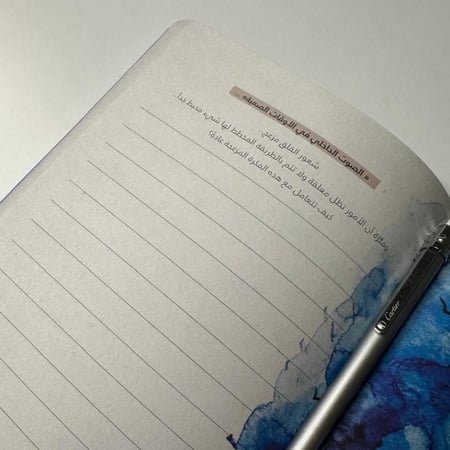 « الصوت الداخلي في الأوقات الصعبة» ..
شعور القلق مزعج..
وفكرة أن الأمور تظل معلقة ولا تتم بالطريقة المخطط لها شيء محبط جدا..
كيف تتعامل مع هذه الفكرة المزعجة عادة؟
Cartier